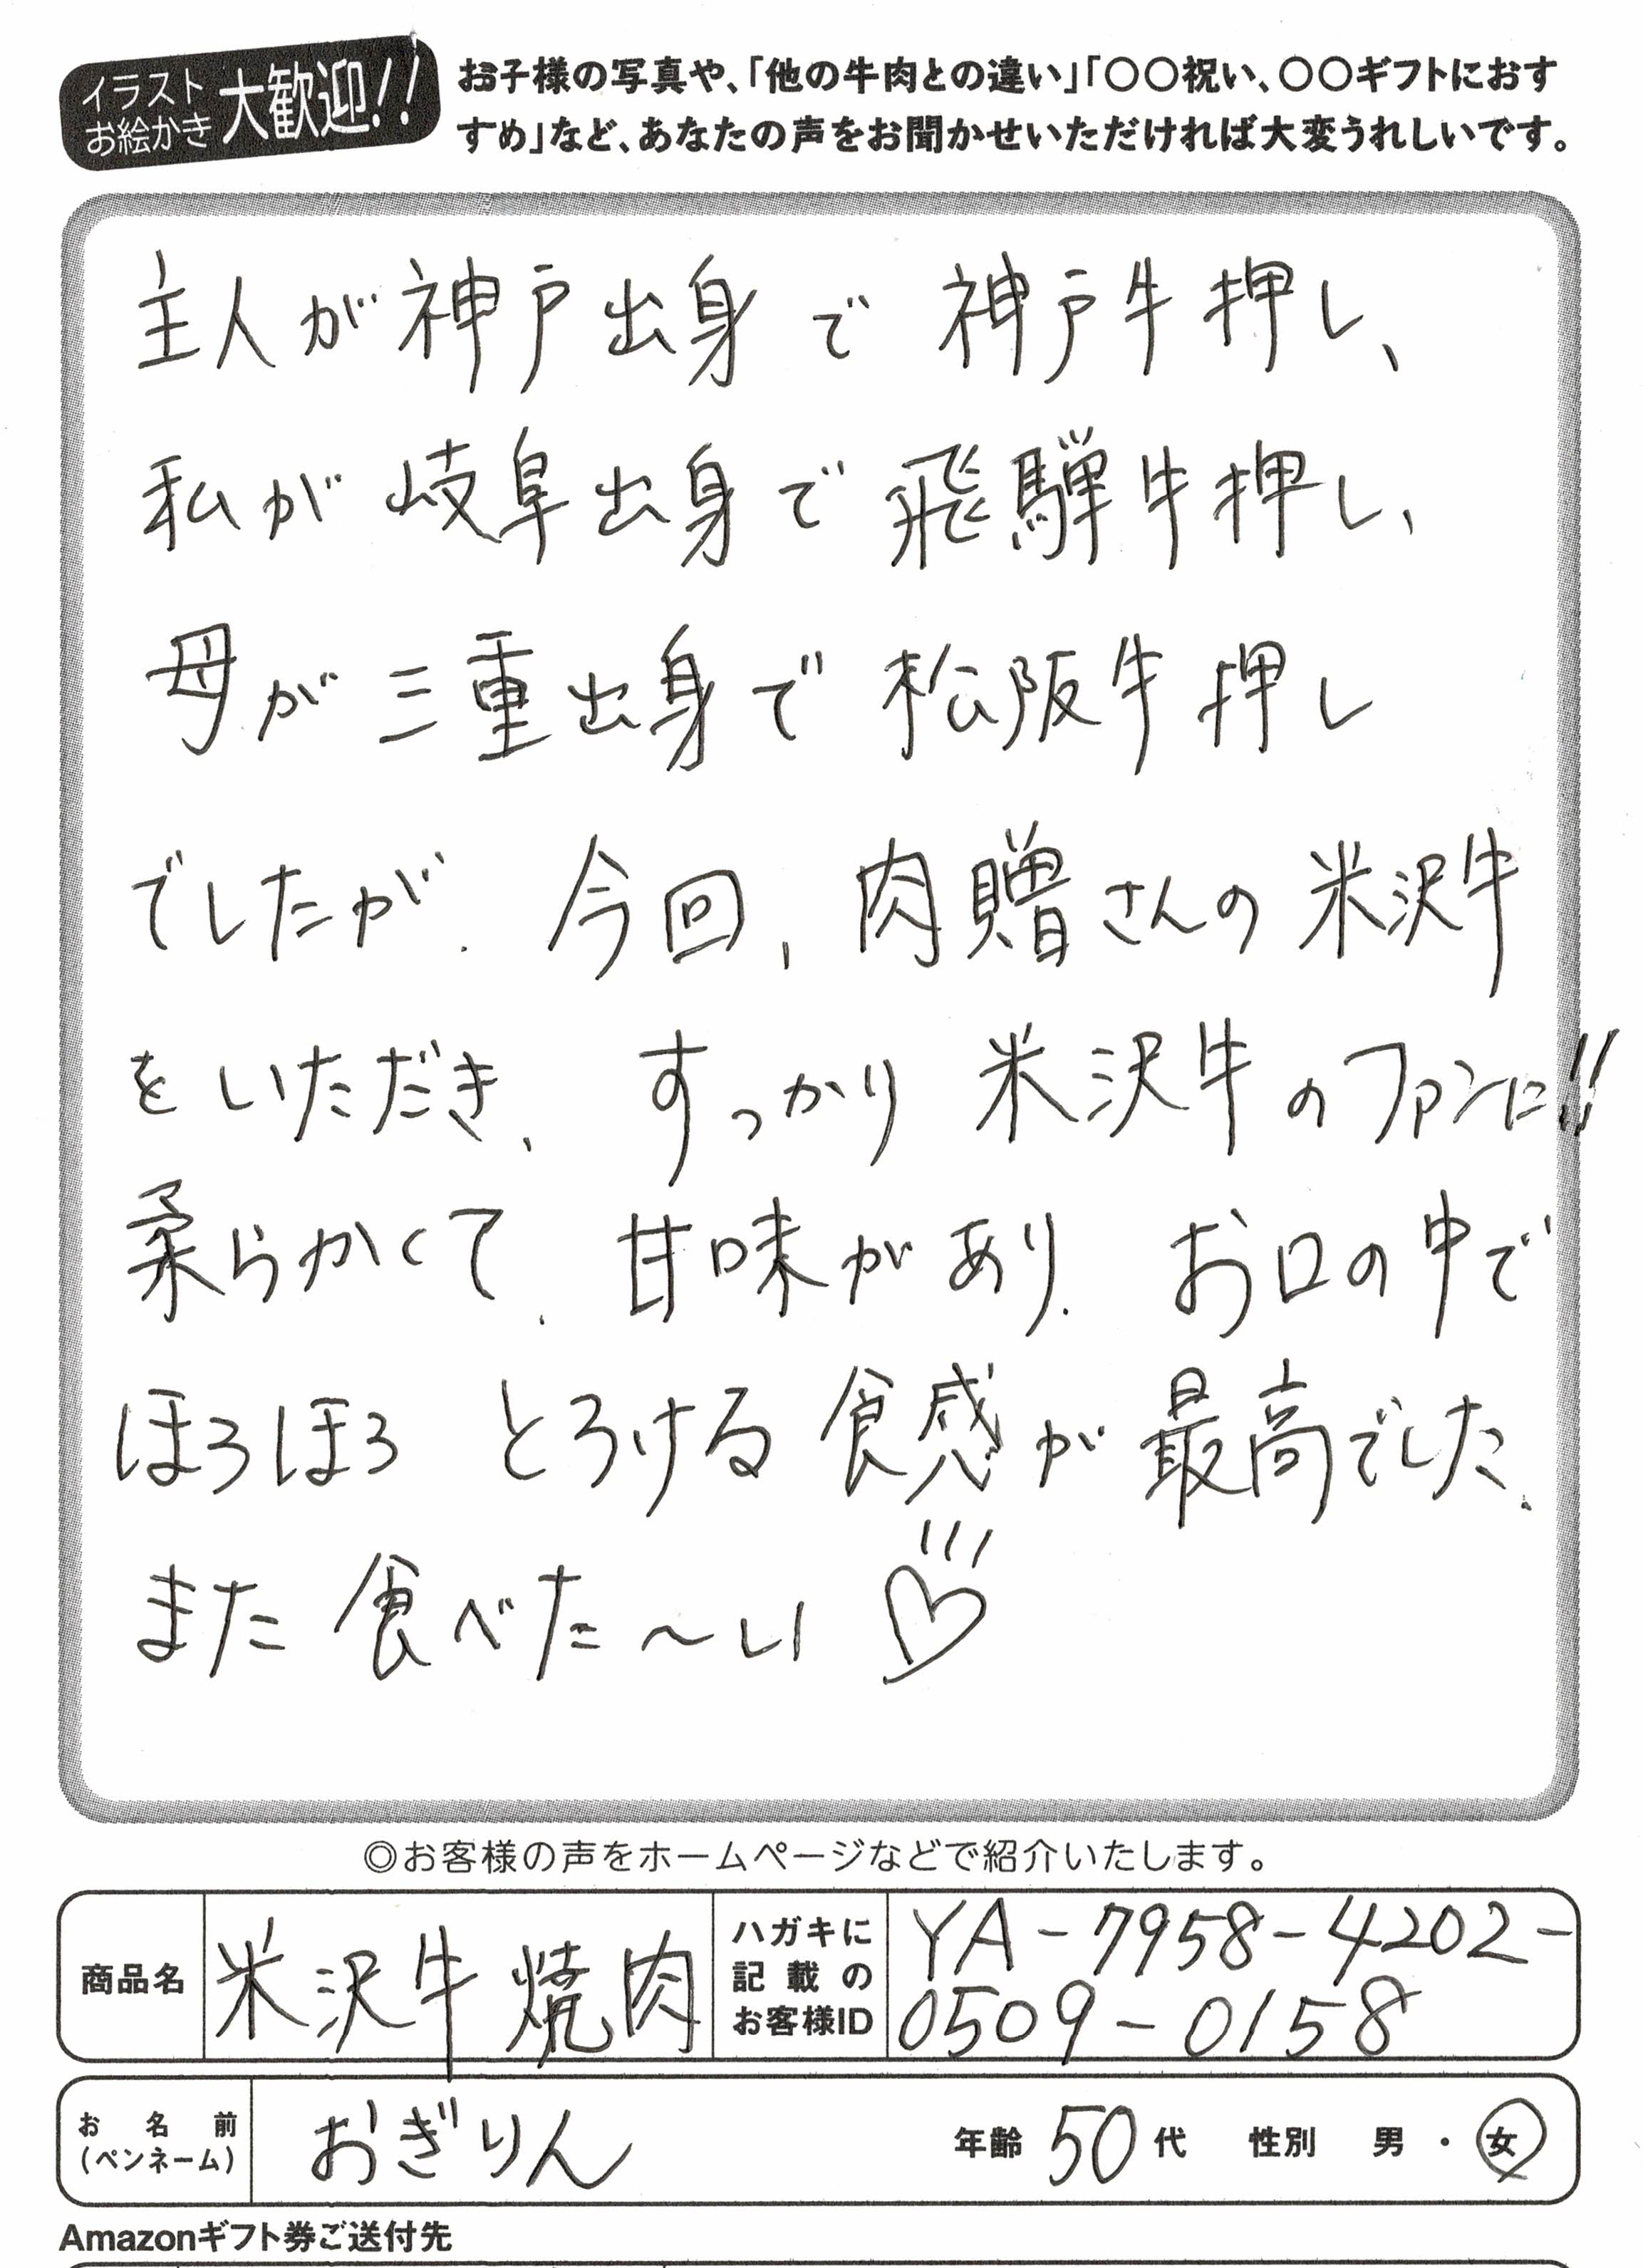 イラスト
お絵かき
大歓迎!!
お子様の写真や、「他の牛肉との違い」「〇〇祝い、〇〇ギフトにおす
すめ」など、あなたの声をお聞かせいただければ大変うれしいです。
主人が神戸出身で 神戸牛押し、
私が岐阜出身で飛騨牛押し、
母が三重出身で 松阪牛押し
でしたが、今回、肉贈さんの米沢牛
をいただき、すっかり米沢牛のファンに!!
柔らかくて、甘味があり、お口の中で
ほろほろ とろける食感が最高でした。
また食べた〜い♡
◎お客様の声をホームページなどで紹介いたします。
商品名 米沢牛焼肉
ハガキに
記載の
お客様ID
YA-7958-4202-
0509-0158
お名前
(ペンネーム)
おぎりん
年齢 50代 性別 男・女
Amazonギフト券ご送付先